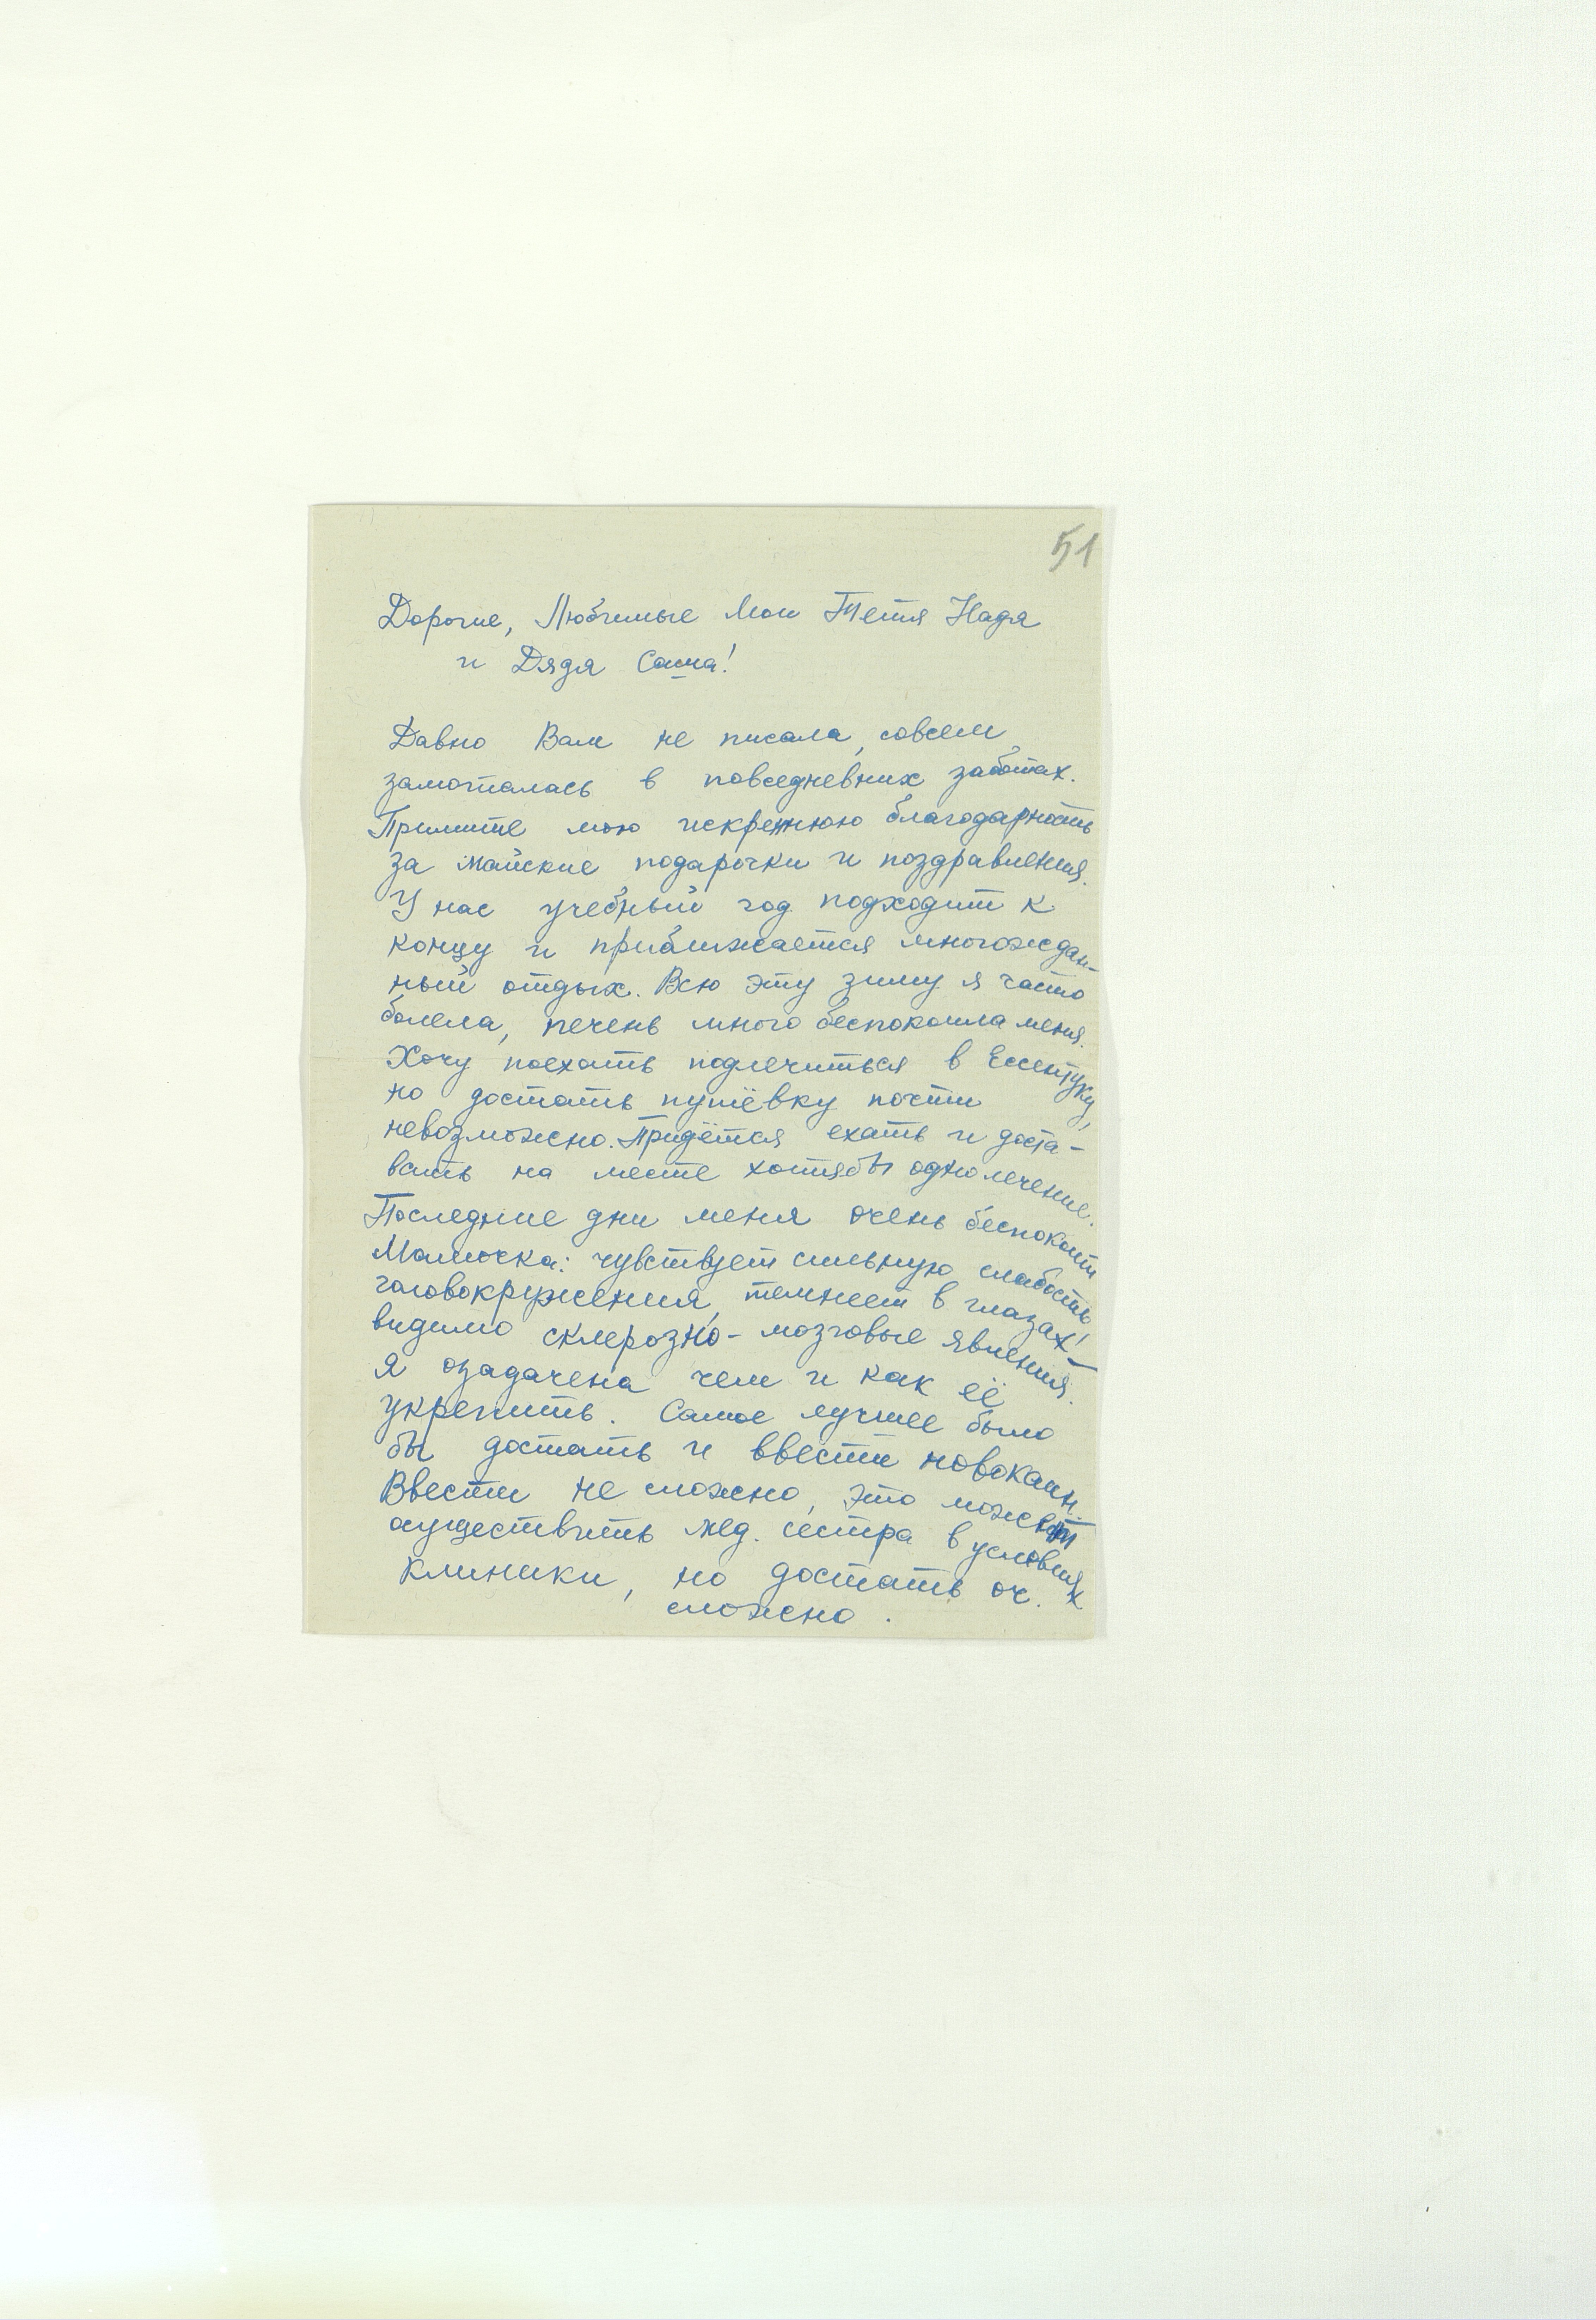 51
Дорогие, Любимые Мои Тетя Надя
и Дядя Саша!
Давно Вам не писала, совсем
замоталась в повседневних заботах.
Примите мою искреннюю благодарность
за майские подарочки и поздравления.
У нас учебный год подходит к
концу и приближается многождан-
ный отдых. Всю эту зиму я часто
болела, печень много беспокоила меня.
Хочу поехать подлечиться в Ессентуки,
но достать путёвку почти
невозможно. Придётся ехать и доста-
вать на месте хотябы одно лечение.
Последние дни меня очень беспокоит
Мамочка: чувствует сильную слабость
головокружения, темнеет в глазах! –
видимо склерозно-мозговые явления.
Я озадачена чем и как её
укрепить. Самое лучшее было
бы достать и ввести новокаин.
Ввести не сложно, это может
осуществить мед. сестра в условиях
клиники, но достать оч.
сложно.